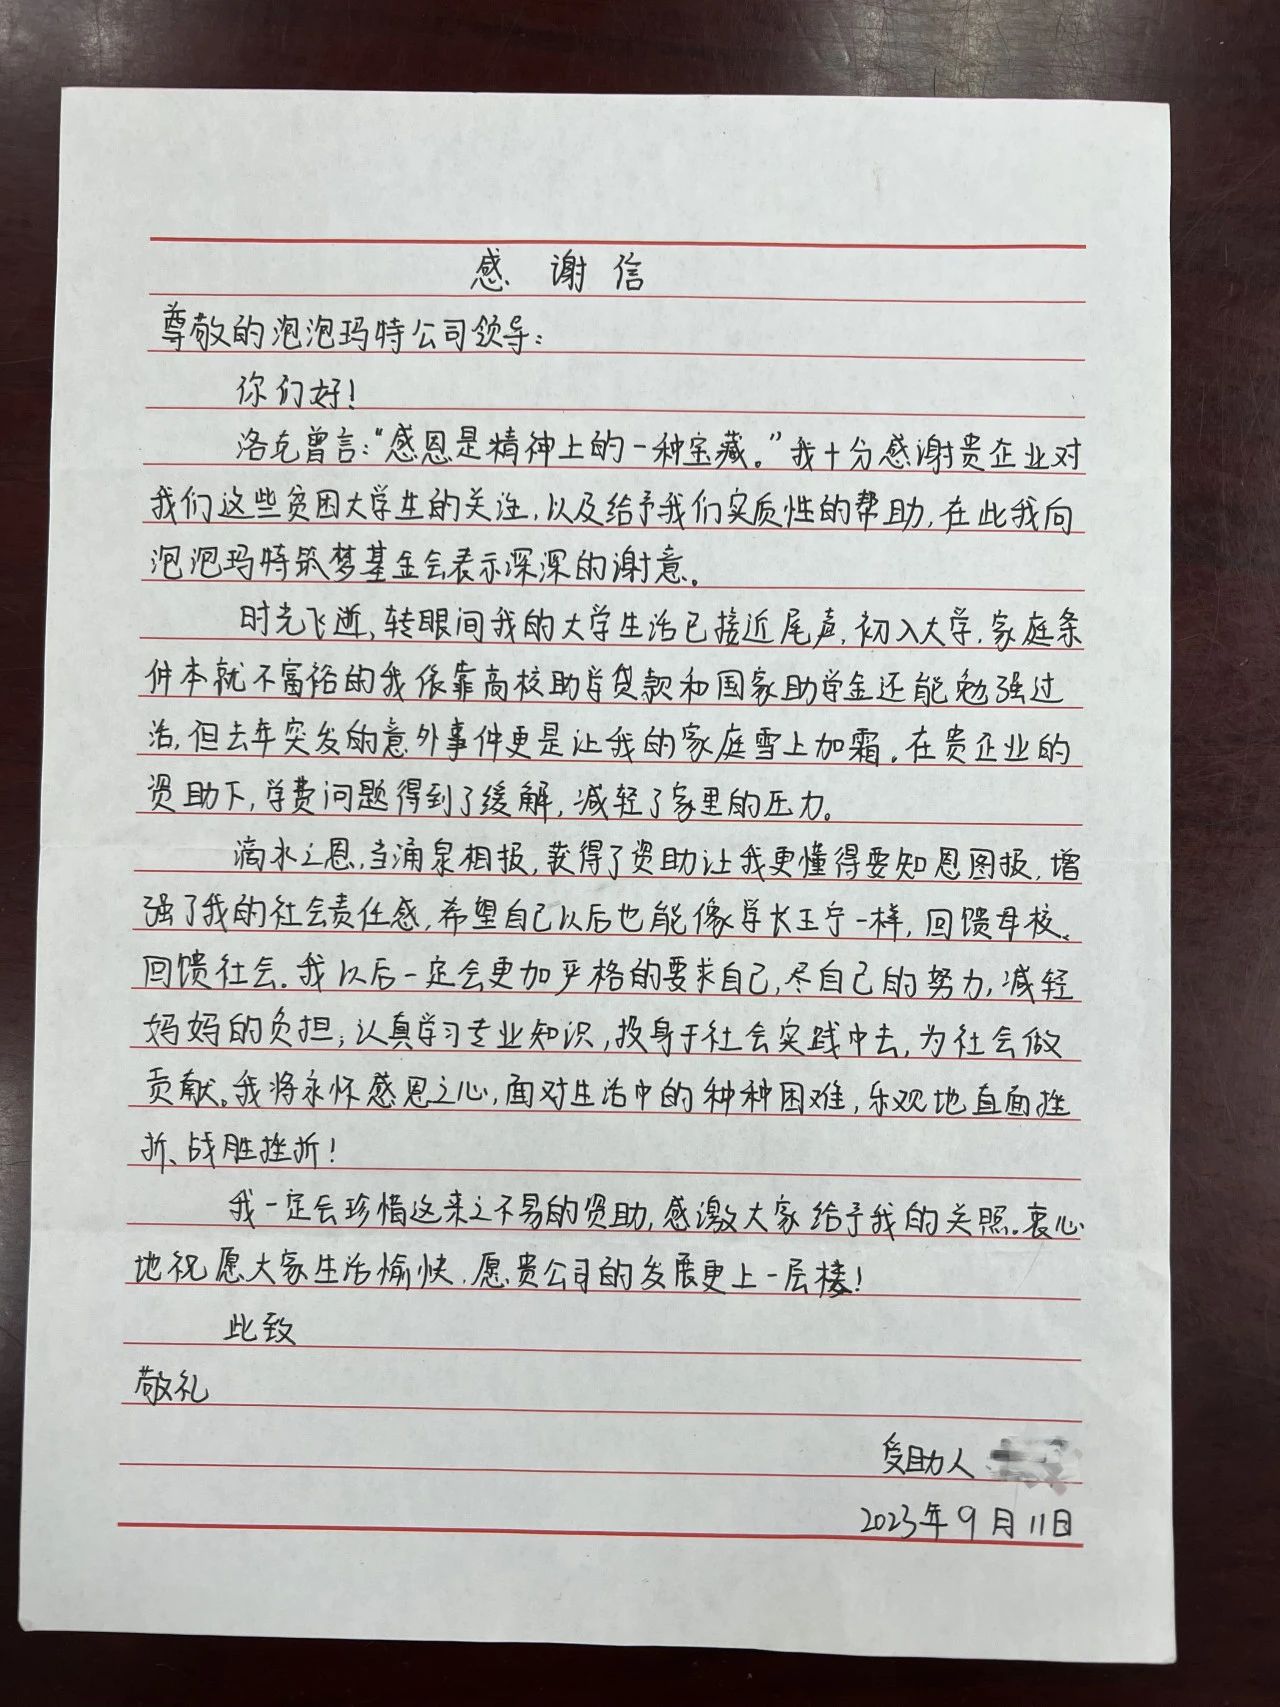 感谢信
尊敬的泡泡玛特公司领导：
你们好！
洛克曾言：“感恩是精神上的一种宝藏。”我十分感谢贵企业对
我们这些贫困大学生的关注，以及给予我们实质性的帮助，在此我向
泡泡玛特筑梦基金会表示深深的谢意。
时光飞逝，转眼间我的大学生活已接近尾声，初入大学，家庭条
件本就不富裕的我依靠高校助学贷款和国家助学金还能勉强过
活，但去年突发的意外事件更是让我的家庭雪上加霜。在贵企业的
资助下，学费问题得到了缓解，减轻了家里的压力。
滴水之恩，当涌泉相报，获得了资助让我更懂得要知恩图报，增
强了我的社会责任感，希望自己以后也能像学长王宁一样，回馈母校、
回馈社会。我以后一定会更加严格的要求自己，尽自己的努力，减轻
妈妈的负担；认真学习专业知识，投身于社会实践中去，为社会做
贡献。我将永怀感恩之心，面对生活中的种种困难，乐观地直面挫
折、战胜挫折！
我一定会珍惜这来之不易的资助，感激大家给予我的关照。衷心
地祝愿大家生活愉快，愿贵公司的发展更上一层楼！
此致
敬礼
受助人
2023年9月11日